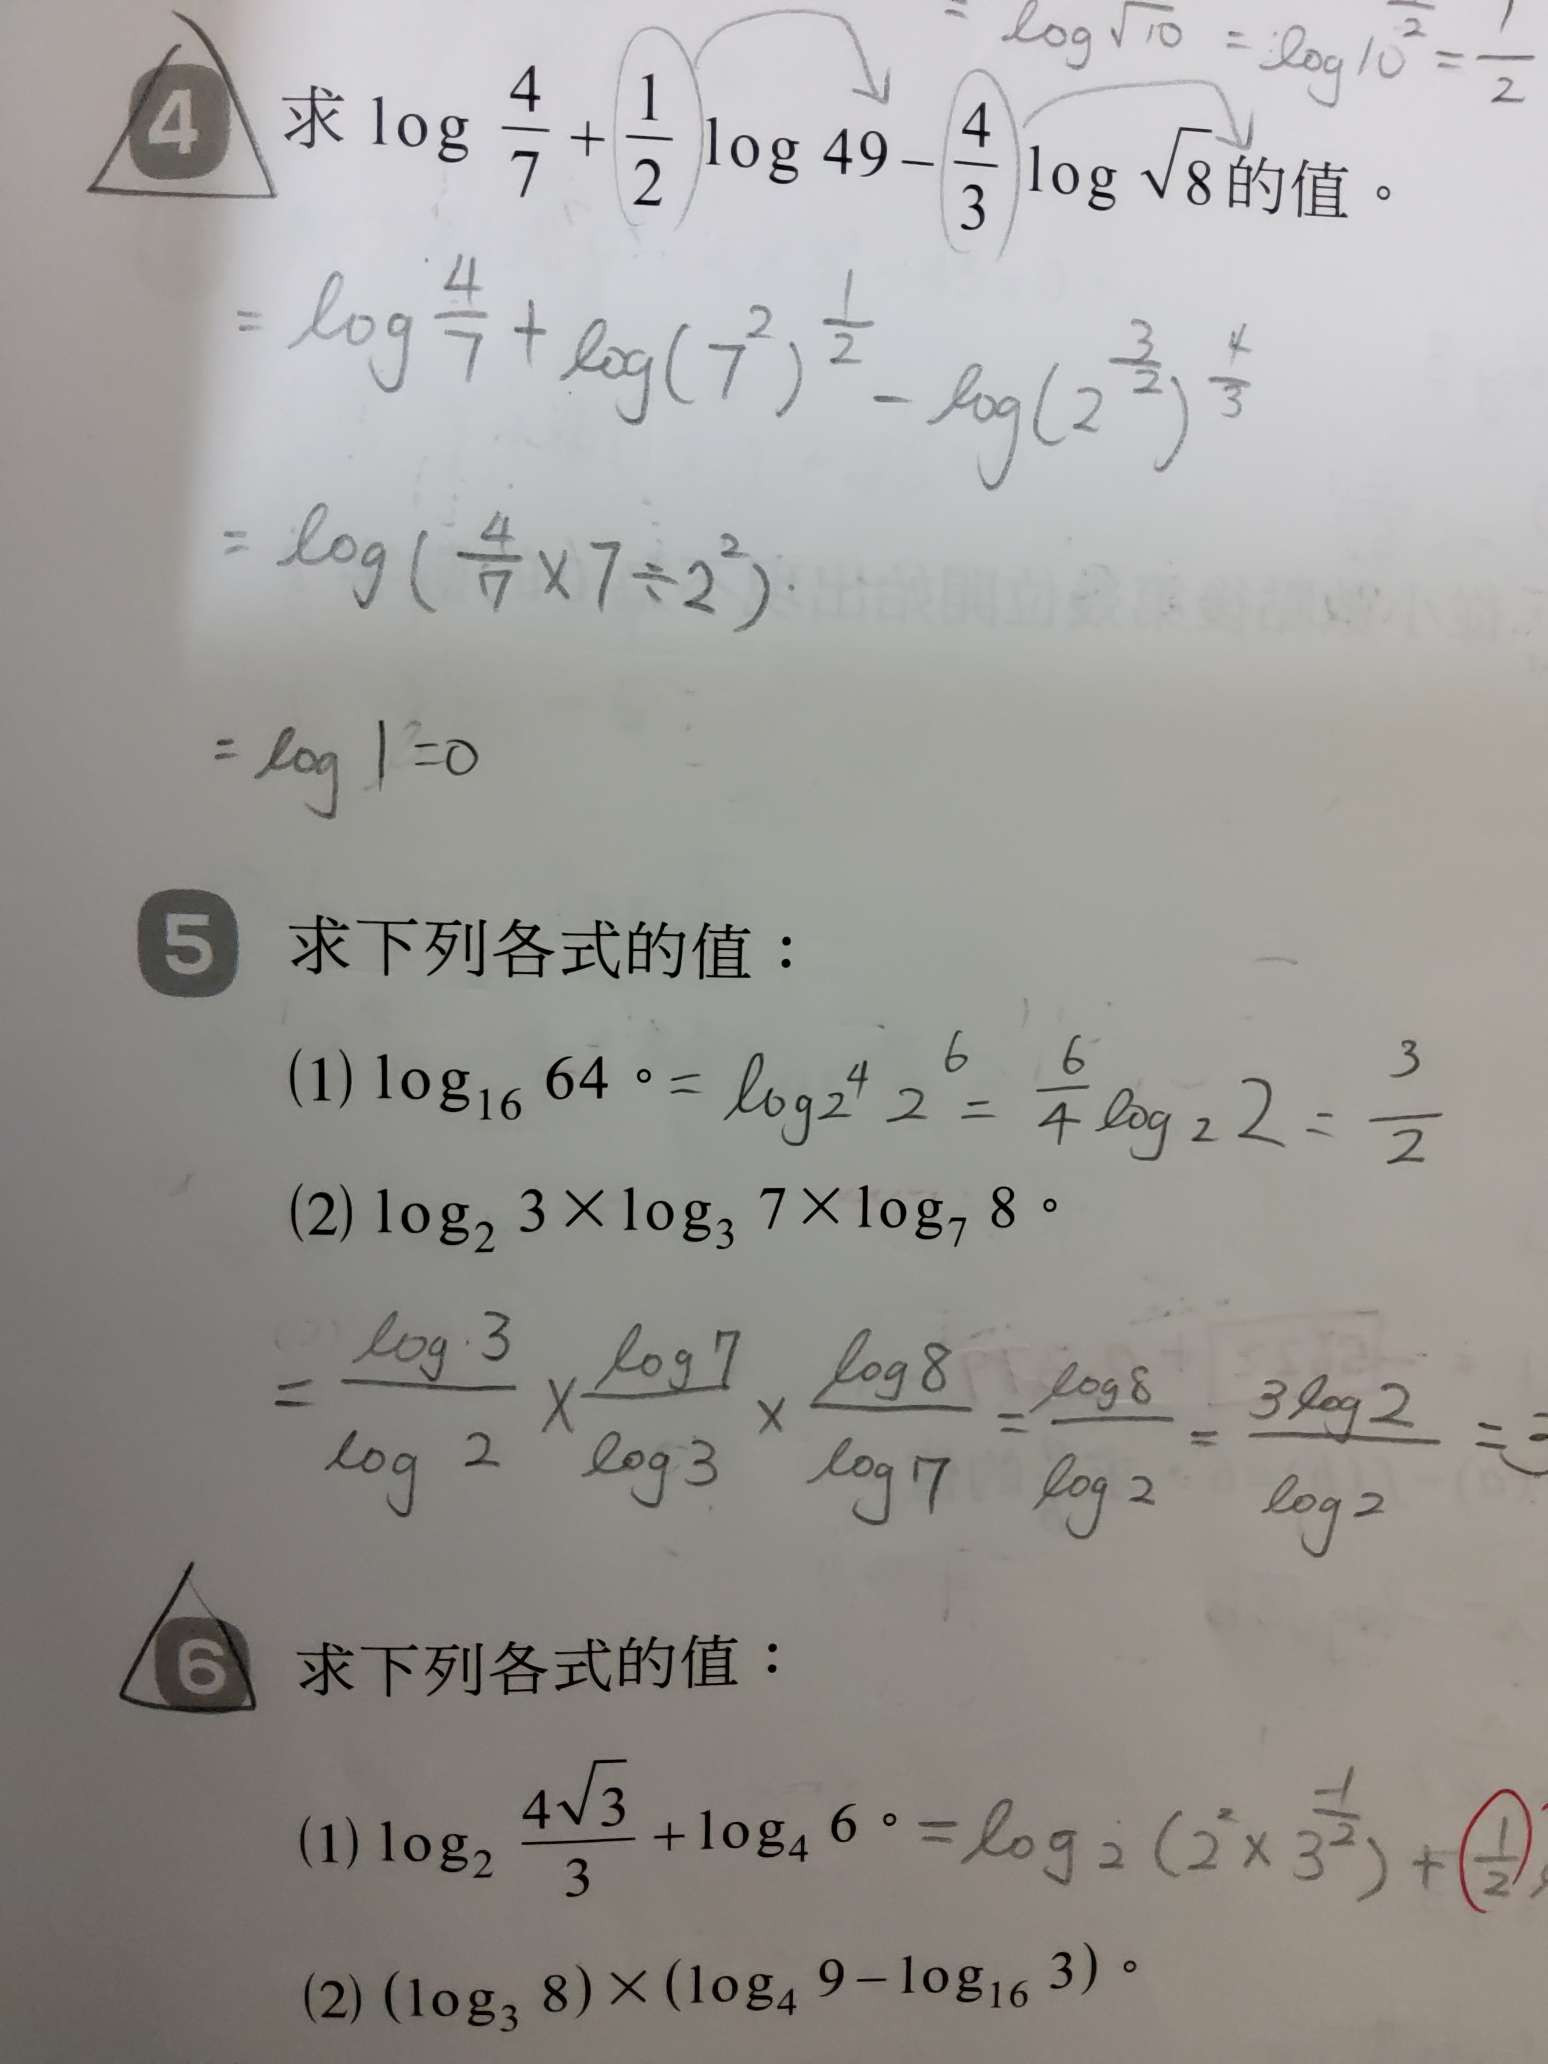 = log√10 = log10^{1/2} = 1/2
4 求 log 4/7 + 1/2 log 49 − 4/3 log √8 的值。
= log 4/7 + log(7^2)^{1/2} − log(2^{3/2})^{4/3}
= log(4/7 × 7 ÷ 2^2)
= log 1 = 0
5 求下列各式的值：
(1) log_{16} 64。= log_{2^4} 2^6 = 6/4 log_2 2 = 3/2
(2) log_2 3 × log_3 7 × log_7 8。
= log 3/log 2 × log 7/log 3 × log 8/log 7 = log 8/log 2 = 3 log 2/log 2 = 3
6 求下列各式的值：
(1) log_2 4√3/3 + log_4 6。= log_2 (2^2 × 3^{-1/2}) + 1/2
(2) (log_3 8) × (log_4 9 − log_{16} 3)。